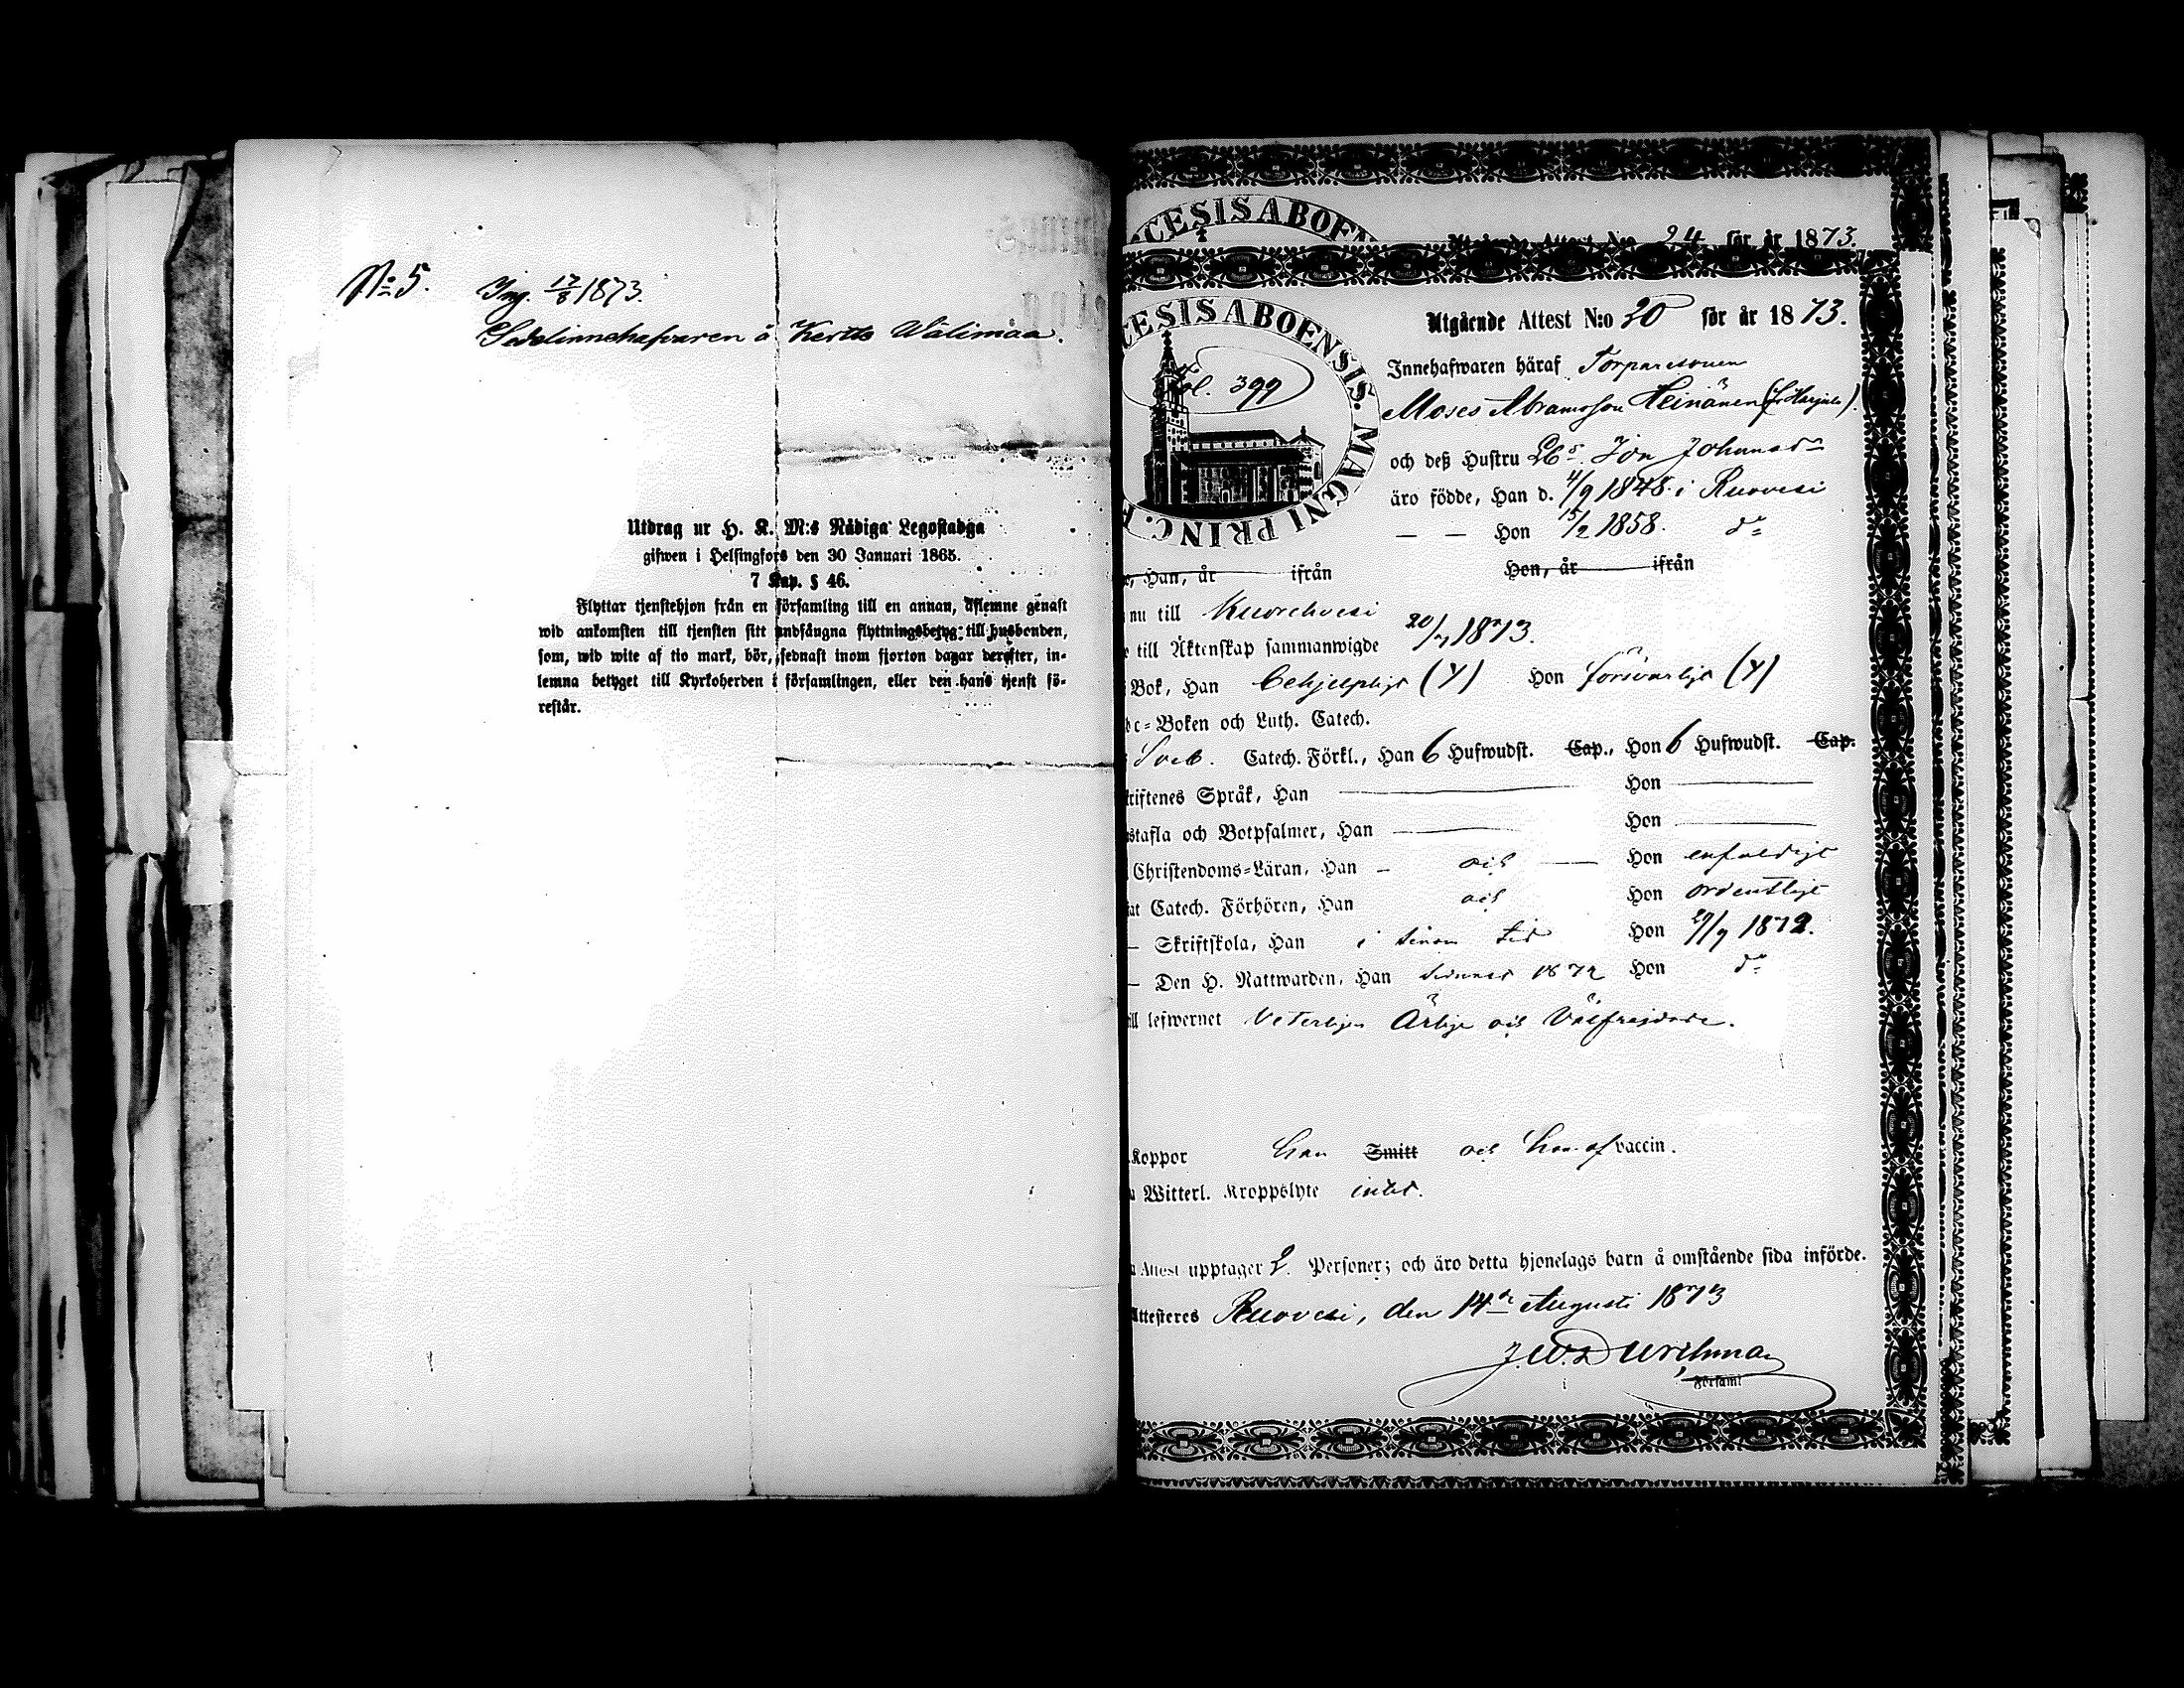 No 5. Ing. 17/8 1873.
Sedelinnehafvaren å Kertte Wälimaa.
Utdrag ur H. K. M:s Nådiga Legostadga
gifwen i Helsingfors den 30 Januari 1865.
7 Kap. § 46.
Flyttar tjenstehjon från en församling till en annan, aflemne genast
wid ankomsten till tjensten sitt undfångna flyttningsbetyg till husbonden,
som, wid wite af tio mark, bör, sednast inom fjorton dagar derefter, in-
lemna betyget till Kyrkoherden i församlingen, eller den hans tjenst fö-
restår.
CESIS ABOEN
Utgående Attest N:o 24 för år 1873.
CESIS ABOENSIS. MAGNI PRINC. F
Fol. 399
Utgående Attest N:o 20 för år 1873.
Innehafwaren häraf Torparesonen
Moses Abramsson Heinänen
och deß Hustru Johansd:r
äro födde, Han d. 4/9 1848 i Ruovesi
— — Hon 15/2 1858. d:o
Han, år ifrån Hon, år ifrån
nu till Kuorehvesi
till Äktenskap sammanwigde 20/7 1873.
Bok, Han behjelpligt (Y) Hon försvarligt (Y)
bc-Boken och Luth. Catech.
Sveb. Catech. Förkl., Han 6 Hufwudst. Cap., Hon 6 Hufwudst. Cap.
riftenes Språk, Han — Hon —
stafla och Botpsalmer, Han — Hon —
Christendoms-Läran, Han — och — Hon enfaldigt
at Catech. Förhören, Han och Hon ordentligt
— Skriftskola, Han i sinom tid Hon 29/9 1872.
— Den H. Nattwarden, Han sednast 1872 Hon d:o
ill lefwernet Veterligen Ärlige och Välfrejdade.
Koppor han Smitt och hon af vaccin.
Witterl. Kroppslyte intet.
Attest upptager 2. Personer; och äro detta hjonelags barn å omstående sida införde.
Attesteres Ruovesi, den 14de Augusti 1873
J. W. Durchman
Församl